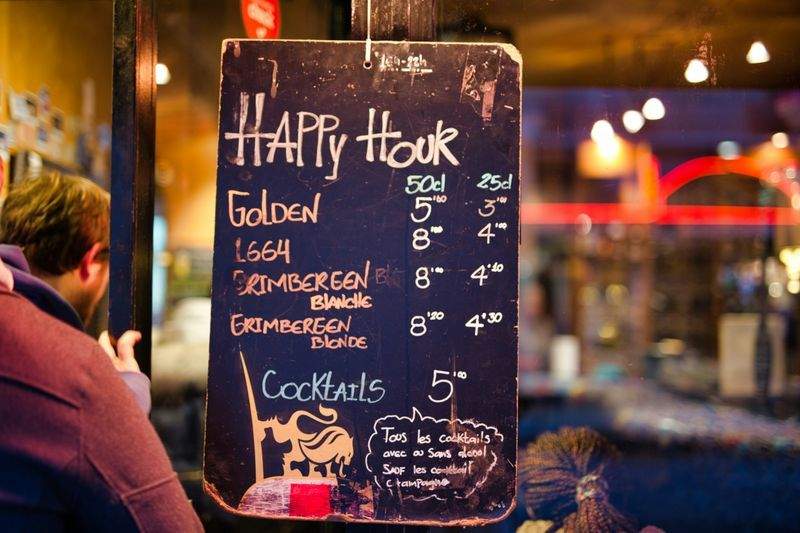 16h-22h
HAPPy HOUR
50cl 25cl
GOLDEN 5'00 3'00
1664 8'00 4'00
GRIMBERGEN BLANCHE 8'00 4'10
GRIMBERGEN BLONDE 8'20 4'30
COCKTAILS 5'00
Tous les cocktails
avec ou sans alcool
SAUF les cocktail
champagne